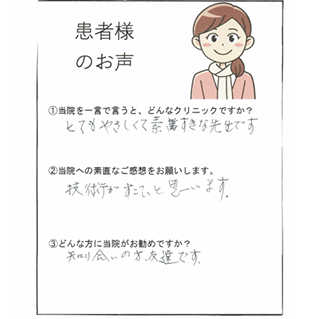 患者様
のお声
①当院を一言で言うと、どんなクリニックですか？
とてもやさしくて素敵すぎな先生です
②当院への素直なご感想をお願いします。
技術がすごいと思います。
③どんな方に当院がお勧めですか？
知り合いの方、友達です。